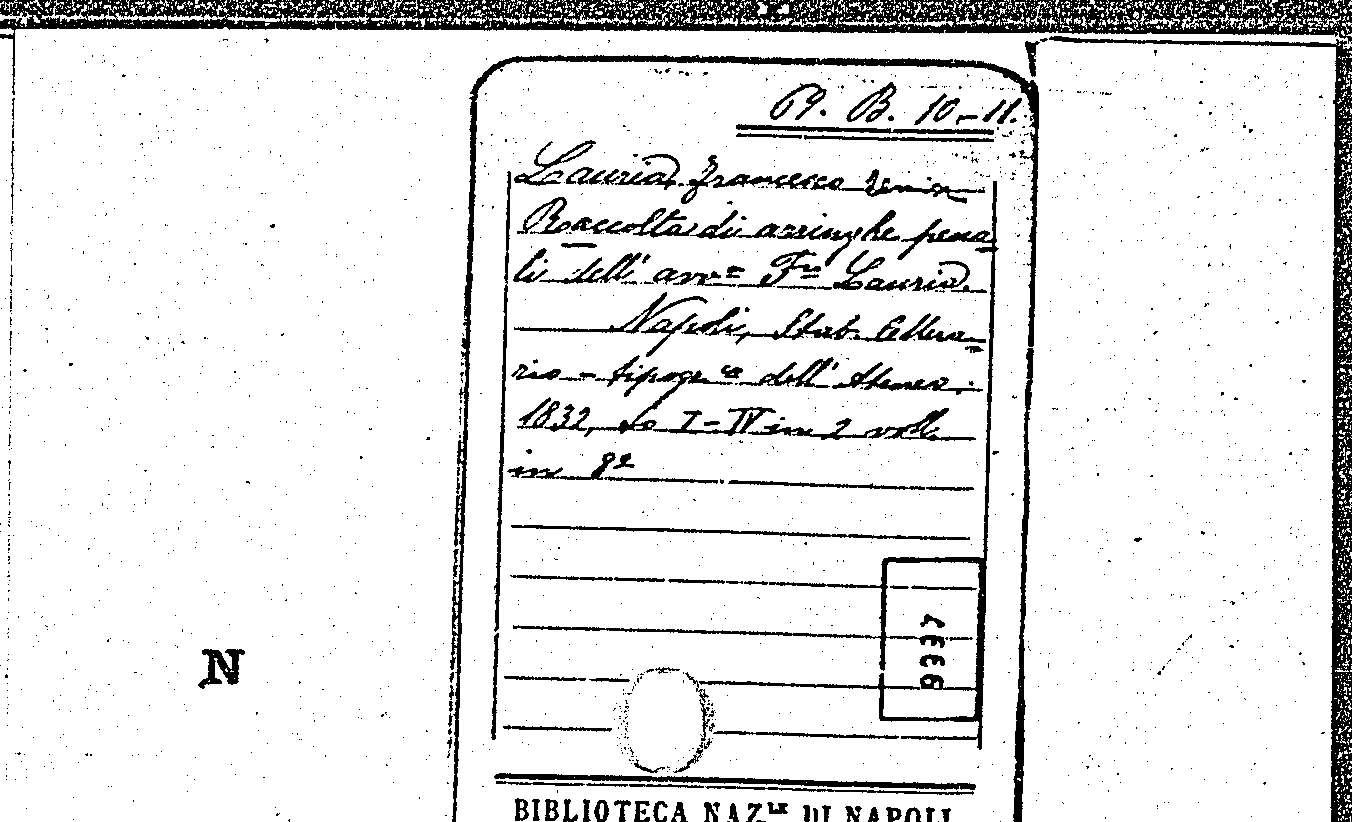 69. B. 10-11.
Lauria, Francesco
Raccolta di arringhe pena
li dell' avvº Frº Lauria.
Napoli, Stab. lettera-
rio - tipogrco dell' Ateneo.
1832, I-IV in 2 voll.
in 8º
9337
N
BIBLIOTECA NAZLE DI NAPOLI